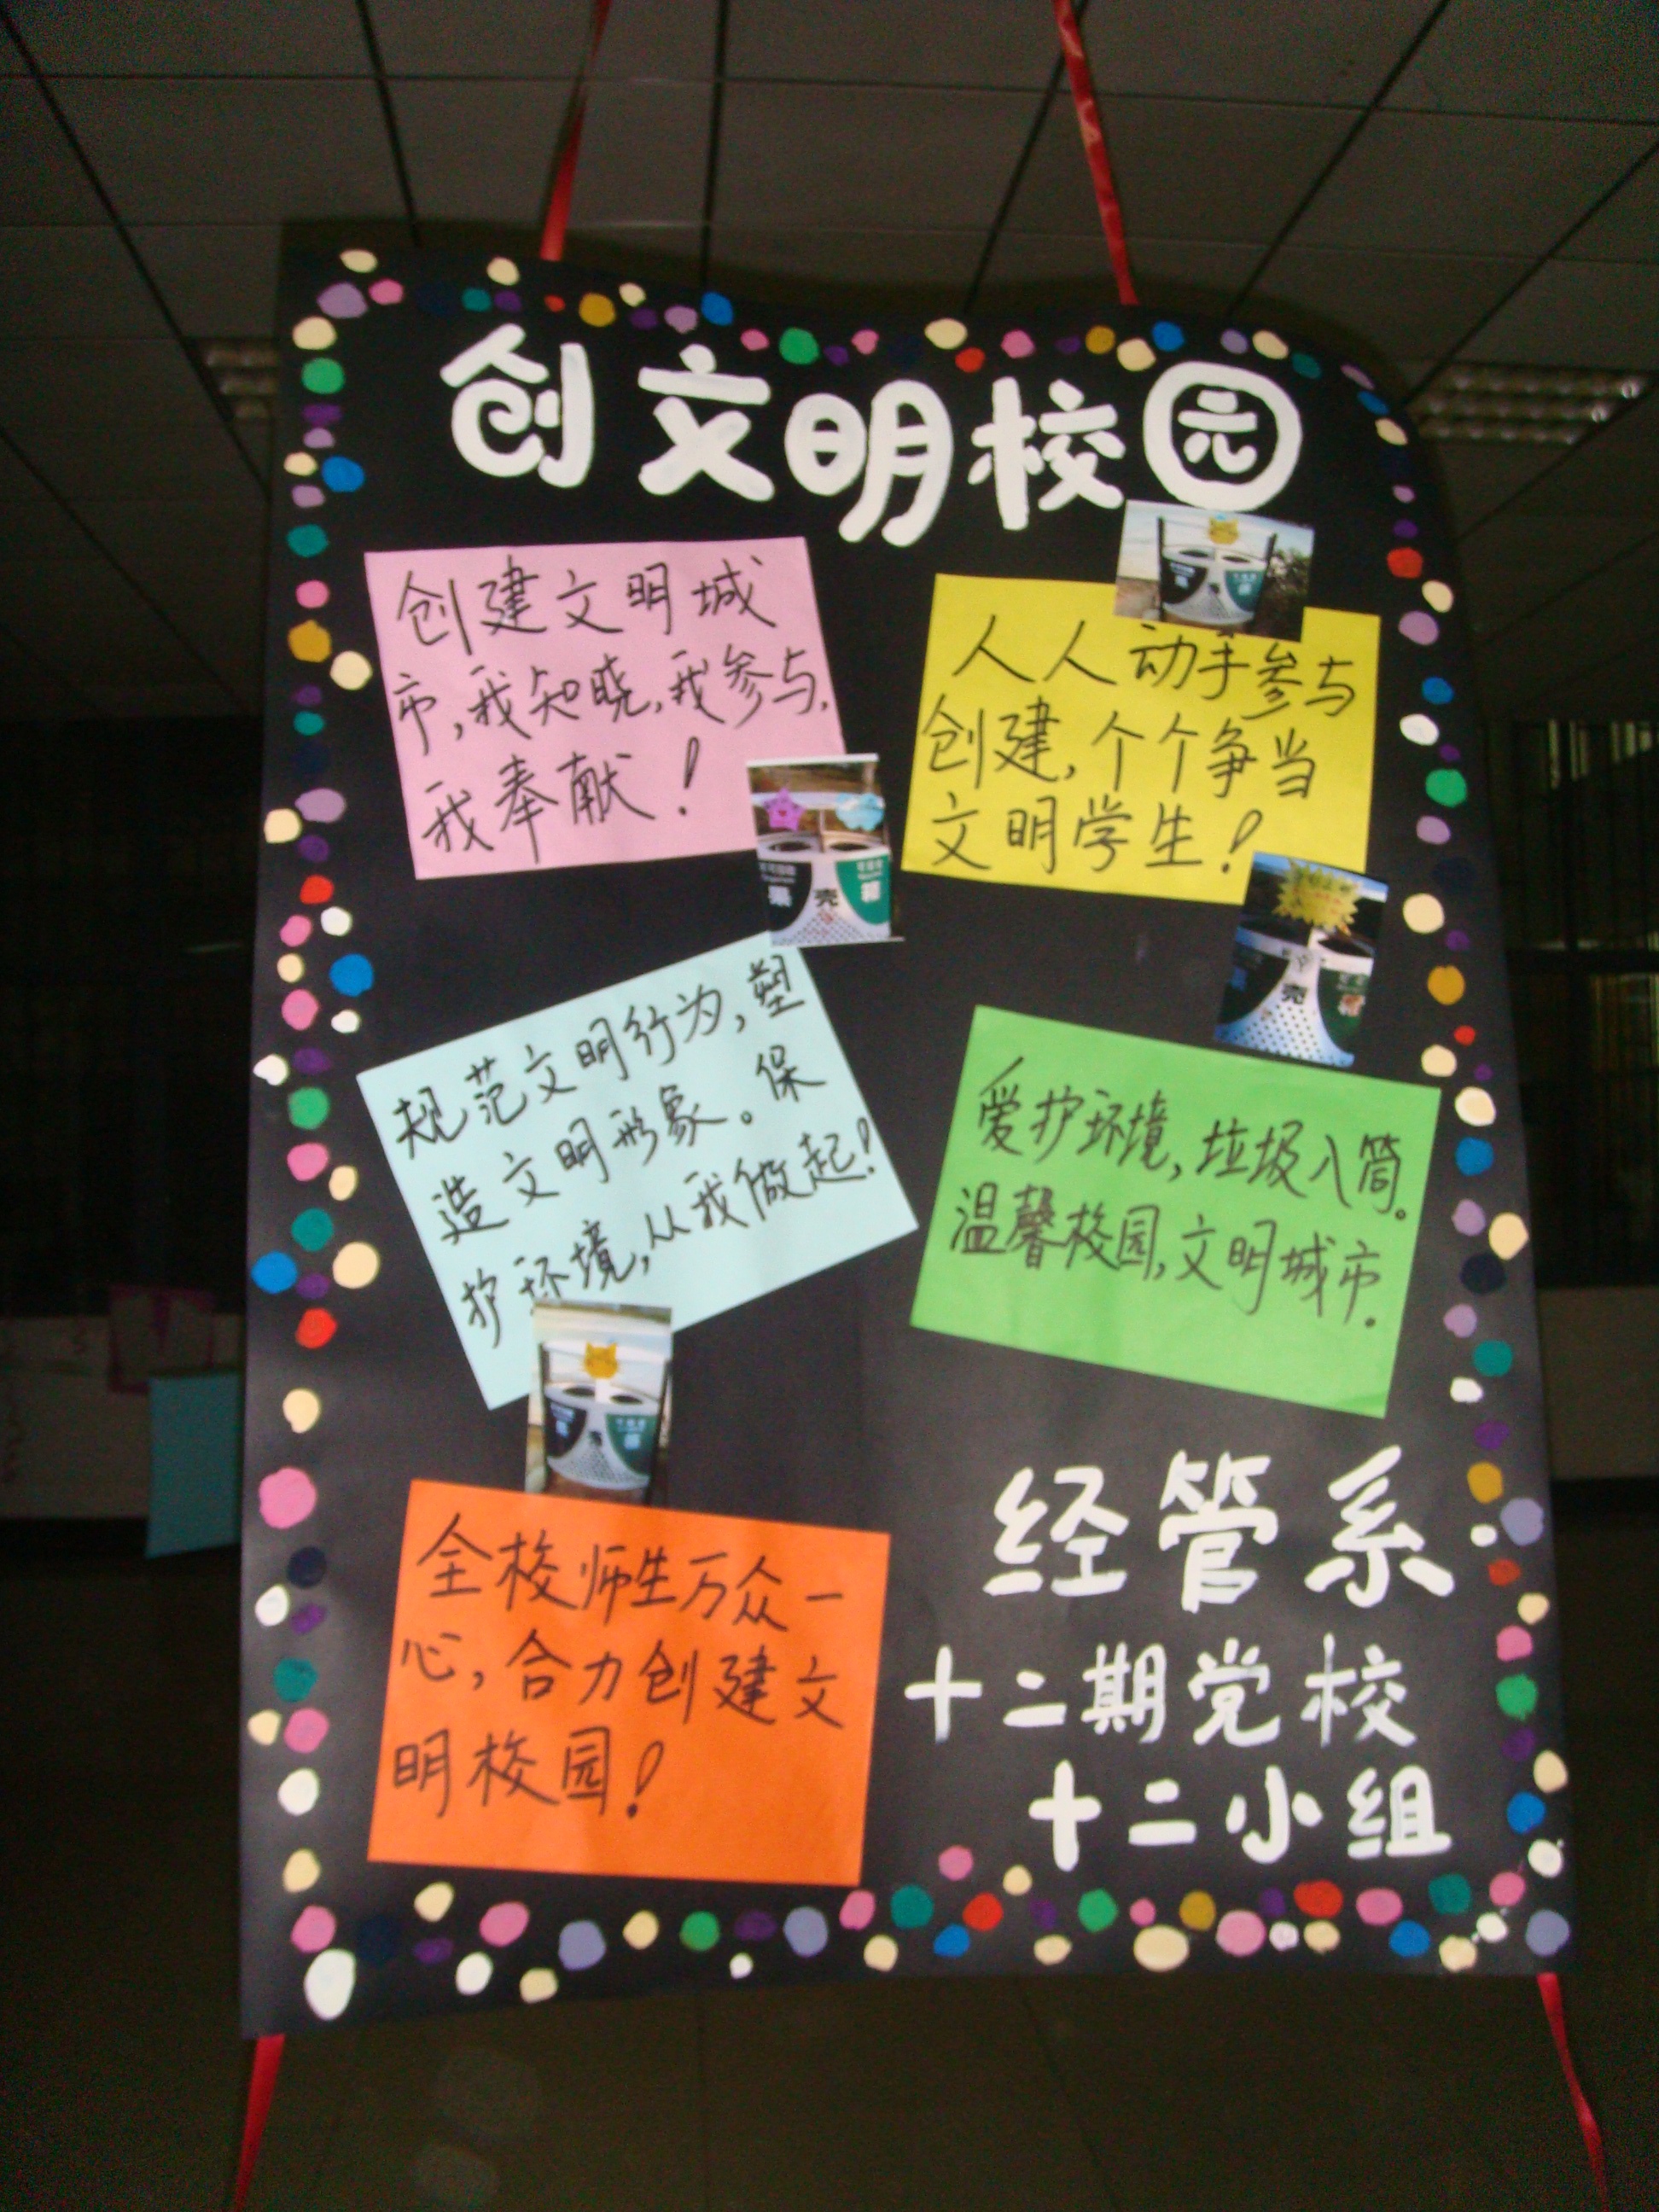 创文明校园
创建文明城
市,我知晓,我参与,
我奉献！
人人动手参与
创建,个个争当
文明学生！
果壳箱
规范文明行为,塑
造文明形象。保
护环境,从我做起！
爱护环境,垃圾入筒。
温馨校园,文明城市.
全校师生万众一
心,合力创建文
明校园！
经管系.
十二期党校
十二小组